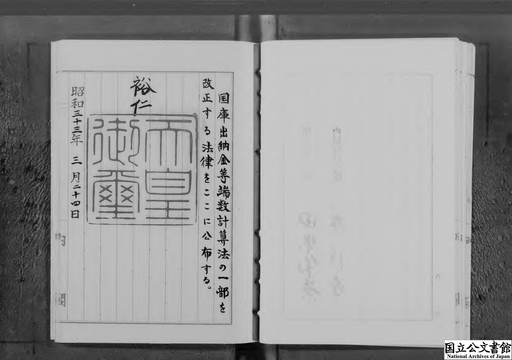 国庫出納金等端数計算法の一部を
改正する法律をここに公布する。
裕仁
天皇
御璽
昭和三十三年三月二十四日
内閣
国立公文書館
National Archives of Japan